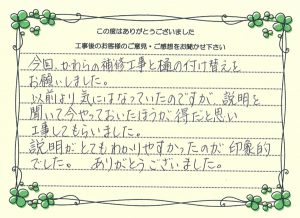 この度はありがとうございました
工事後のお客様のご意見・ご感想をお聞かせ下さい
今回、かわらの補修工事と樋の付け替えを
お願いしました。
以前より気にはなっていたのですが、説明を
聞いて今やっておいたほうが得だと思い
工事してもらいました。
説明がとてもわかりやすかったのが印象的
でした。 ありがとうございました。